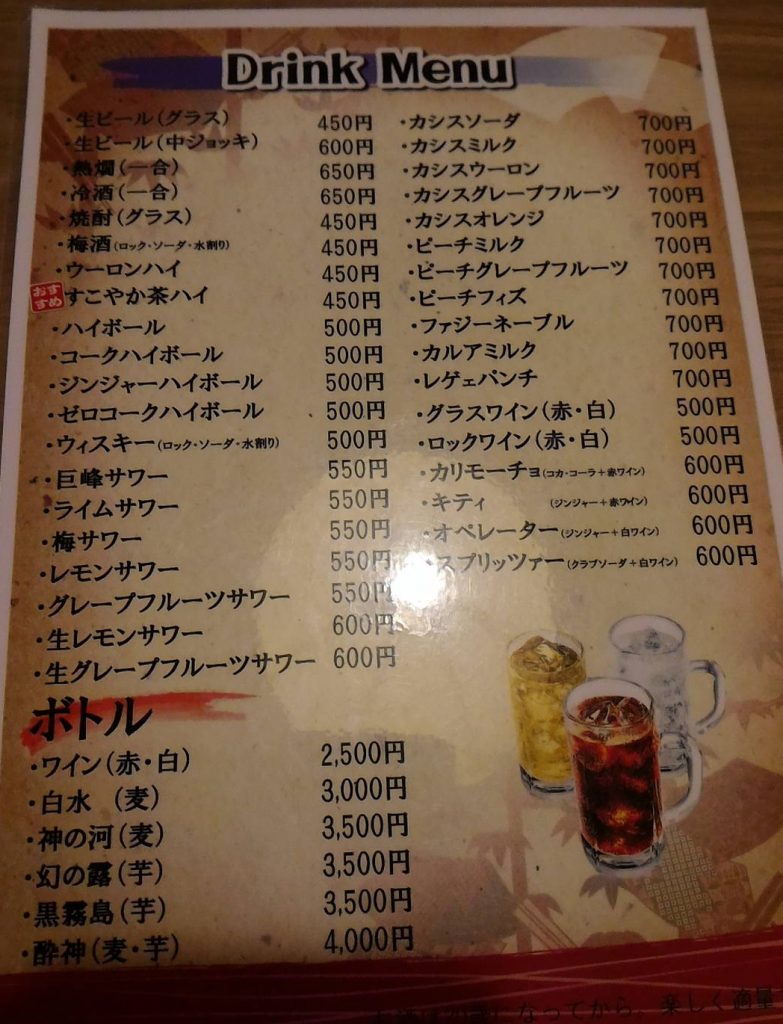 Drink Menu
・生ビール(グラス) 450円
・生ビール(中ジョッキ) 600円
・熱燗(一合) 650円
・冷酒(一合) 650円
・焼酎(グラス) 450円
・梅酒(ロック・ソーダ・水割り) 450円
・ウーロンハイ 450円
おすすめ すこやか茶ハイ 450円
・ハイボール 500円
・コークハイボール 500円
・ジンジャーハイボール 500円
・ゼロコークハイボール 500円
・ウィスキー(ロック・ソーダ・水割り) 500円
・巨峰サワー 550円
・ライムサワー 550円
・梅サワー 550円
・レモンサワー 550円
・グレープフルーツサワー 550円
・生レモンサワー 600円
・生グレープフルーツサワー 600円
・カシスソーダ 700円
・カシスミルク 700円
・カシスウーロン 700円
・カシスグレープフルーツ 700円
・カシスオレンジ 700円
・ピーチミルク 700円
・ピーチグレープフルーツ 700円
・ピーチフィズ 700円
・ファジーネーブル 700円
・カルアミルク 700円
・レゲェパンチ 700円
・グラスワイン(赤・白) 500円
・ロックワイン(赤・白) 500円
・カリモーチョ(コカ・コーラ+赤ワイン) 600円
・キティ (ジンジャー+赤ワイン) 600円
・オペレーター(ジンジャー+白ワイン) 600円
・スプリッツァー(クラブソーダ+白ワイン) 600円
ボトル
・ワイン(赤・白) 2,500円
・白水 (麦) 3,000円
・神の河(麦) 3,500円
・幻の露(芋) 3,500円
・黒霧島(芋) 3,500円
・酔神(麦・芋) 4,000円
になってから。楽しく適量